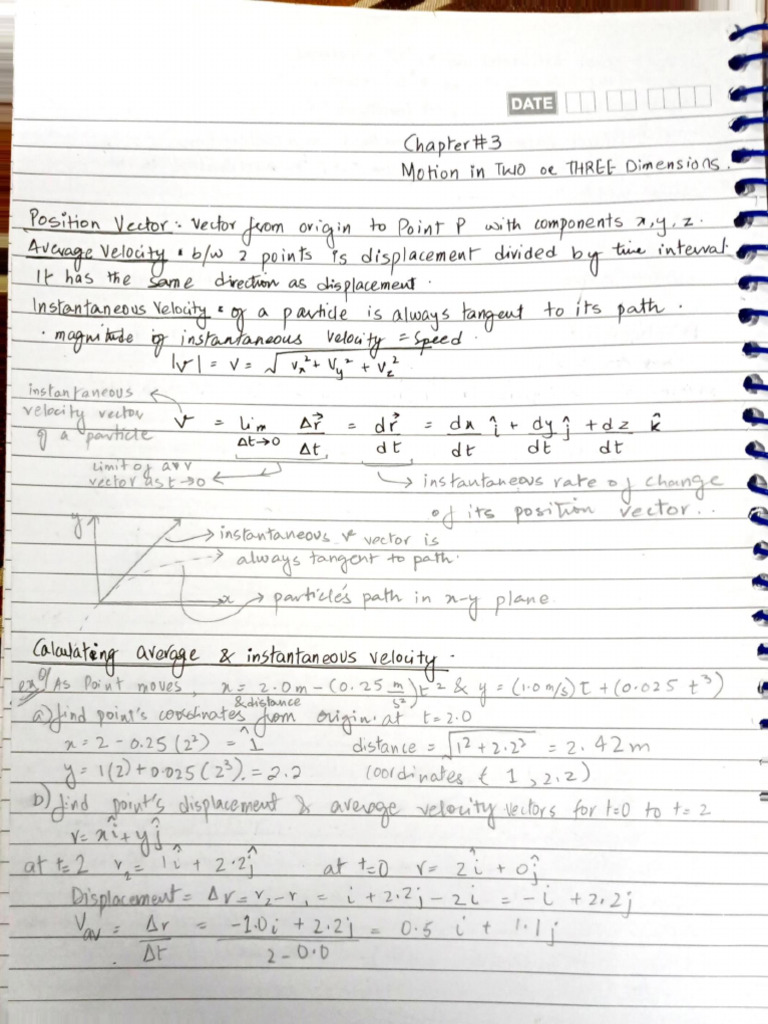 DATE
Chapter#3
Motion in TWO or THREE Dimensions.
Position Vector: Vector from origin to Point P with components x, y, z.
Average Velocity: b/w 2 points is displacement divided by time interval.
It has the same direction as displacement.
Instantaneous Velocity: of a particle is always tangent to its path.
• magnitude of instantaneous velocity = Speed.
|v| = v = √ vx² + vy² + vz²
instantaneous velocity vector of a particle
v = lim Δt→0 Δr⃗/Δt = dr⃗/dt = dx/dt î + dy/dt ĵ + dz/dt k̂
limit of avv vector as t→0
→ instantaneous rate of change
of its position vector..
y
→ instantaneous v vector is
→ always tangent to path.
x
→ particle's path in x-y plane
Calculating average & instantaneous velocity.
ex 9/ As Point moves, x = 2.0m - (0.25 m/s²)t² & y = (1.0 m/s)t + (0.025 t³)
a) find point's coordinates & distance from origin at t=2.0
x = 2 - 0.25(2²) = 1 distance = √1² + 2.2² = 2.42m
y = 1(2) + 0.025(2³) = 2.2 coordinates ( 1, 2.2)
b) find point's displacement & average velocity vectors for t=0 to t=2
r = xî + yĵ
at t=2 r₂ = 1î + 2.2ĵ at t=0 r = 2î + 0ĵ
Displacement = Δr = r₂ - r₁ = i + 2.2j - 2i = -i + 2.2j
Vav = Δr/Δt = -1.0i + 2.2j / 2 - 0.0 = 0.5 i + 1.1j